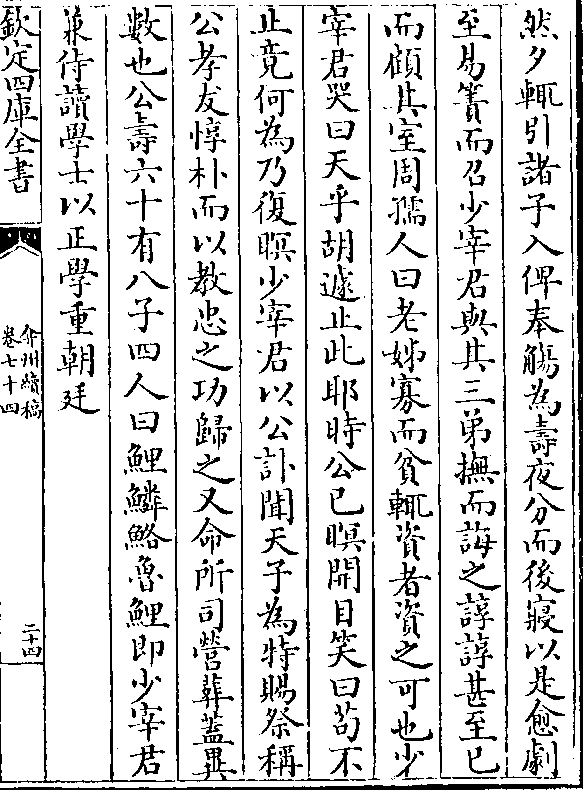 然夕輒引諸子入俾奉觴為壽夜分而後寢以是愈劇
至易簀而召少宰君與其三弟撫而誨之諄諄甚至已
而顧其室周孺人曰老姊寡而貧輒資者資之可也少
宰君哭曰天乎胡遽止此耶時公已瞑開目笑曰苟不
止竟何為乃復瞑少宰君以公訃聞天子為特賜祭稱
公孝友惇朴而以教忠之功歸之又命所司營葬蓋異
數也公壽六十有八子四人曰鯉鱗鮥魯鯉即少宰君
兼侍讀學士以正學重朝廷
欽定四庫全書
弇州續稿
卷七十四
二十四